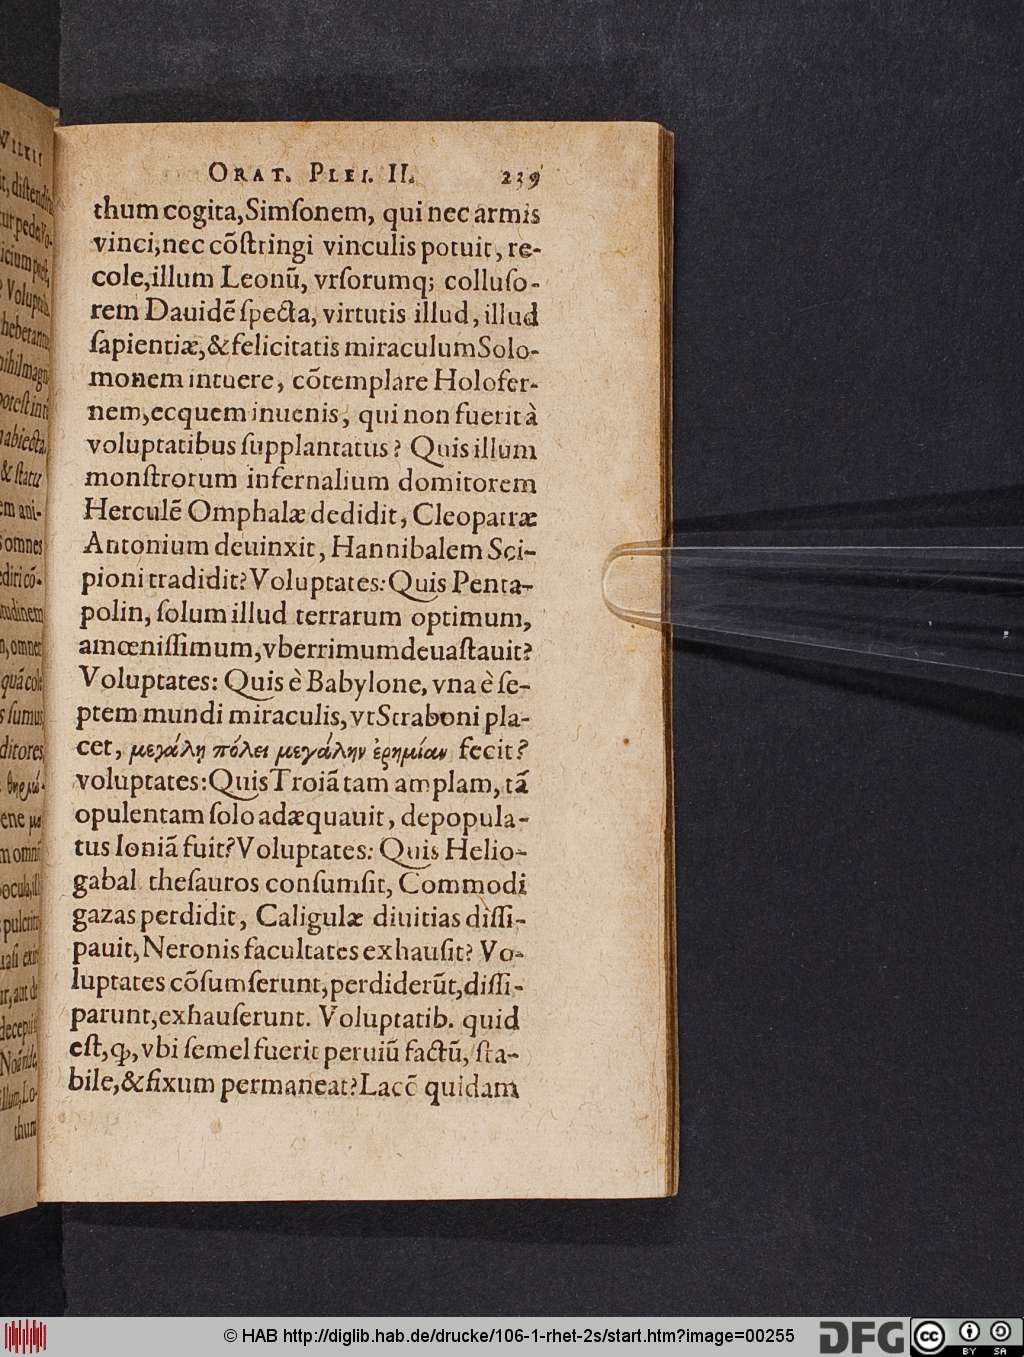 ORAT. PLEI. II. 239
thum cogita, Simſonem, qui nec armis
vinci, nec cõſtringi vinculis potuit, re-
cole, illum Leonũ, vrſorumq; colluſo-
rem Dauidẽ ſpecta, virtutis illud, illud
ſapientiæ, & felicitatis miraculum Solo-
monem intuere, cõtemplare Holofer-
nem, ecquem inuenis, qui non fuerit à
voluptatibus ſupplantatus? Quis illum
monſtrorum infernalium domitorem
Herculẽ Omphalæ dedidit, Cleopatræ
Antonium deuinxit, Hannibalem Sci-
pioni tradidit? Voluptates: Quis Penta-
polin, ſolum illud terrarum optimum,
amœniſſimum, vberrimum deuaſtauit?
Voluptates: Quis è Babylone, vna è ſe-
ptem mundi miraculis, vt Straboni pla-
cet, μεγάλη πόλει μεγάλην ἐρημίαν fecit?
voluptates: Quis Troiã tam amplam, tã
opulentam ſolo adæquauit, depopula-
tus Ioniã fuit? Voluptates: Quis Helio-
gabal theſauros conſumſit, Commodi
gazas perdidit, Caligulæ diuitias diſſi-
pauit, Neronis facultates exhauſit? Vo-
luptates cõſumſerunt, perdiderũt, diſſi-
parunt, exhauſerunt. Voluptatib. quid
eſt, ꝙ, vbi ſemel fuerit peruiũ factũ, ſta-
bile, & fixum permaneat? Lacõ quidam
© HAB http://diglib.hab.de/drucke/106-1-rhet-2s/start.htm?image=00255
DFG
cc BY SA